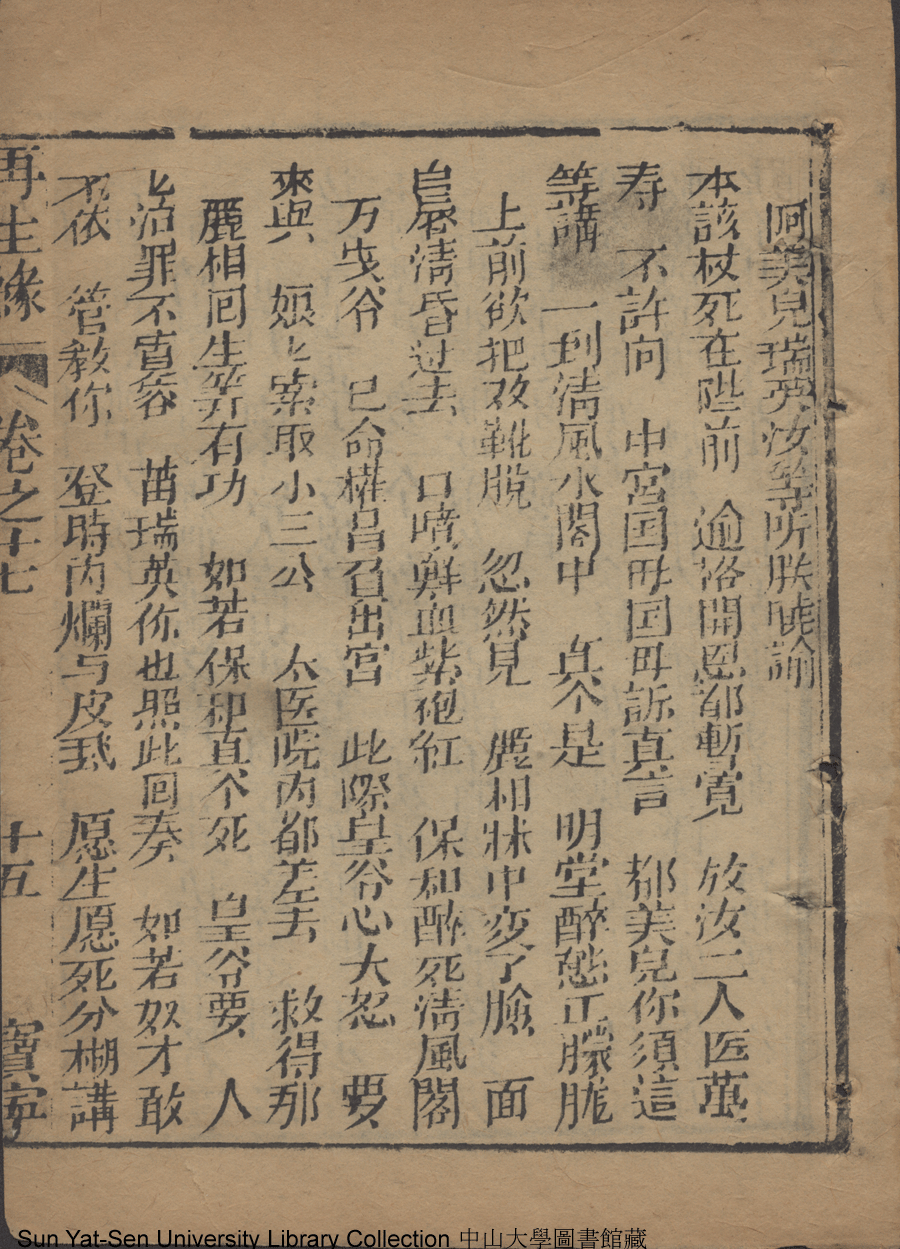 阿美兒瑞英汝等听朕曉諭
本該杖死在陛前　逾格開恩都暫寬　放汝二人医萬
寿　不許向　中宮国毋国毋訴真言　都美兒你須這
等講　一到清風水閣中　真个是　明堂醉態正朦朧
上前欲把双靴脱　忽然見　麗相牀中变了臉　面
自唇清昏过去　口噴鮮血紫袍紅　保和醉死清風閣
万岁爷　已命權昌召出宮　此際皇爷心大怒　要
來與　娘〻索取小三公　太医院内都差去　救得那
麗相回生筭有功　如若保和真个死　皇爷要　人
〻治罪不寬容　苗瑞英你也照此回奏　如若奴才敢
不依　管教你　登時肉爛与皮　愿生愿死分楜講
再生緣　卷之十七　十五　寶寧
Sun Yat-Sen University Library Collection 中山大學圖書館藏